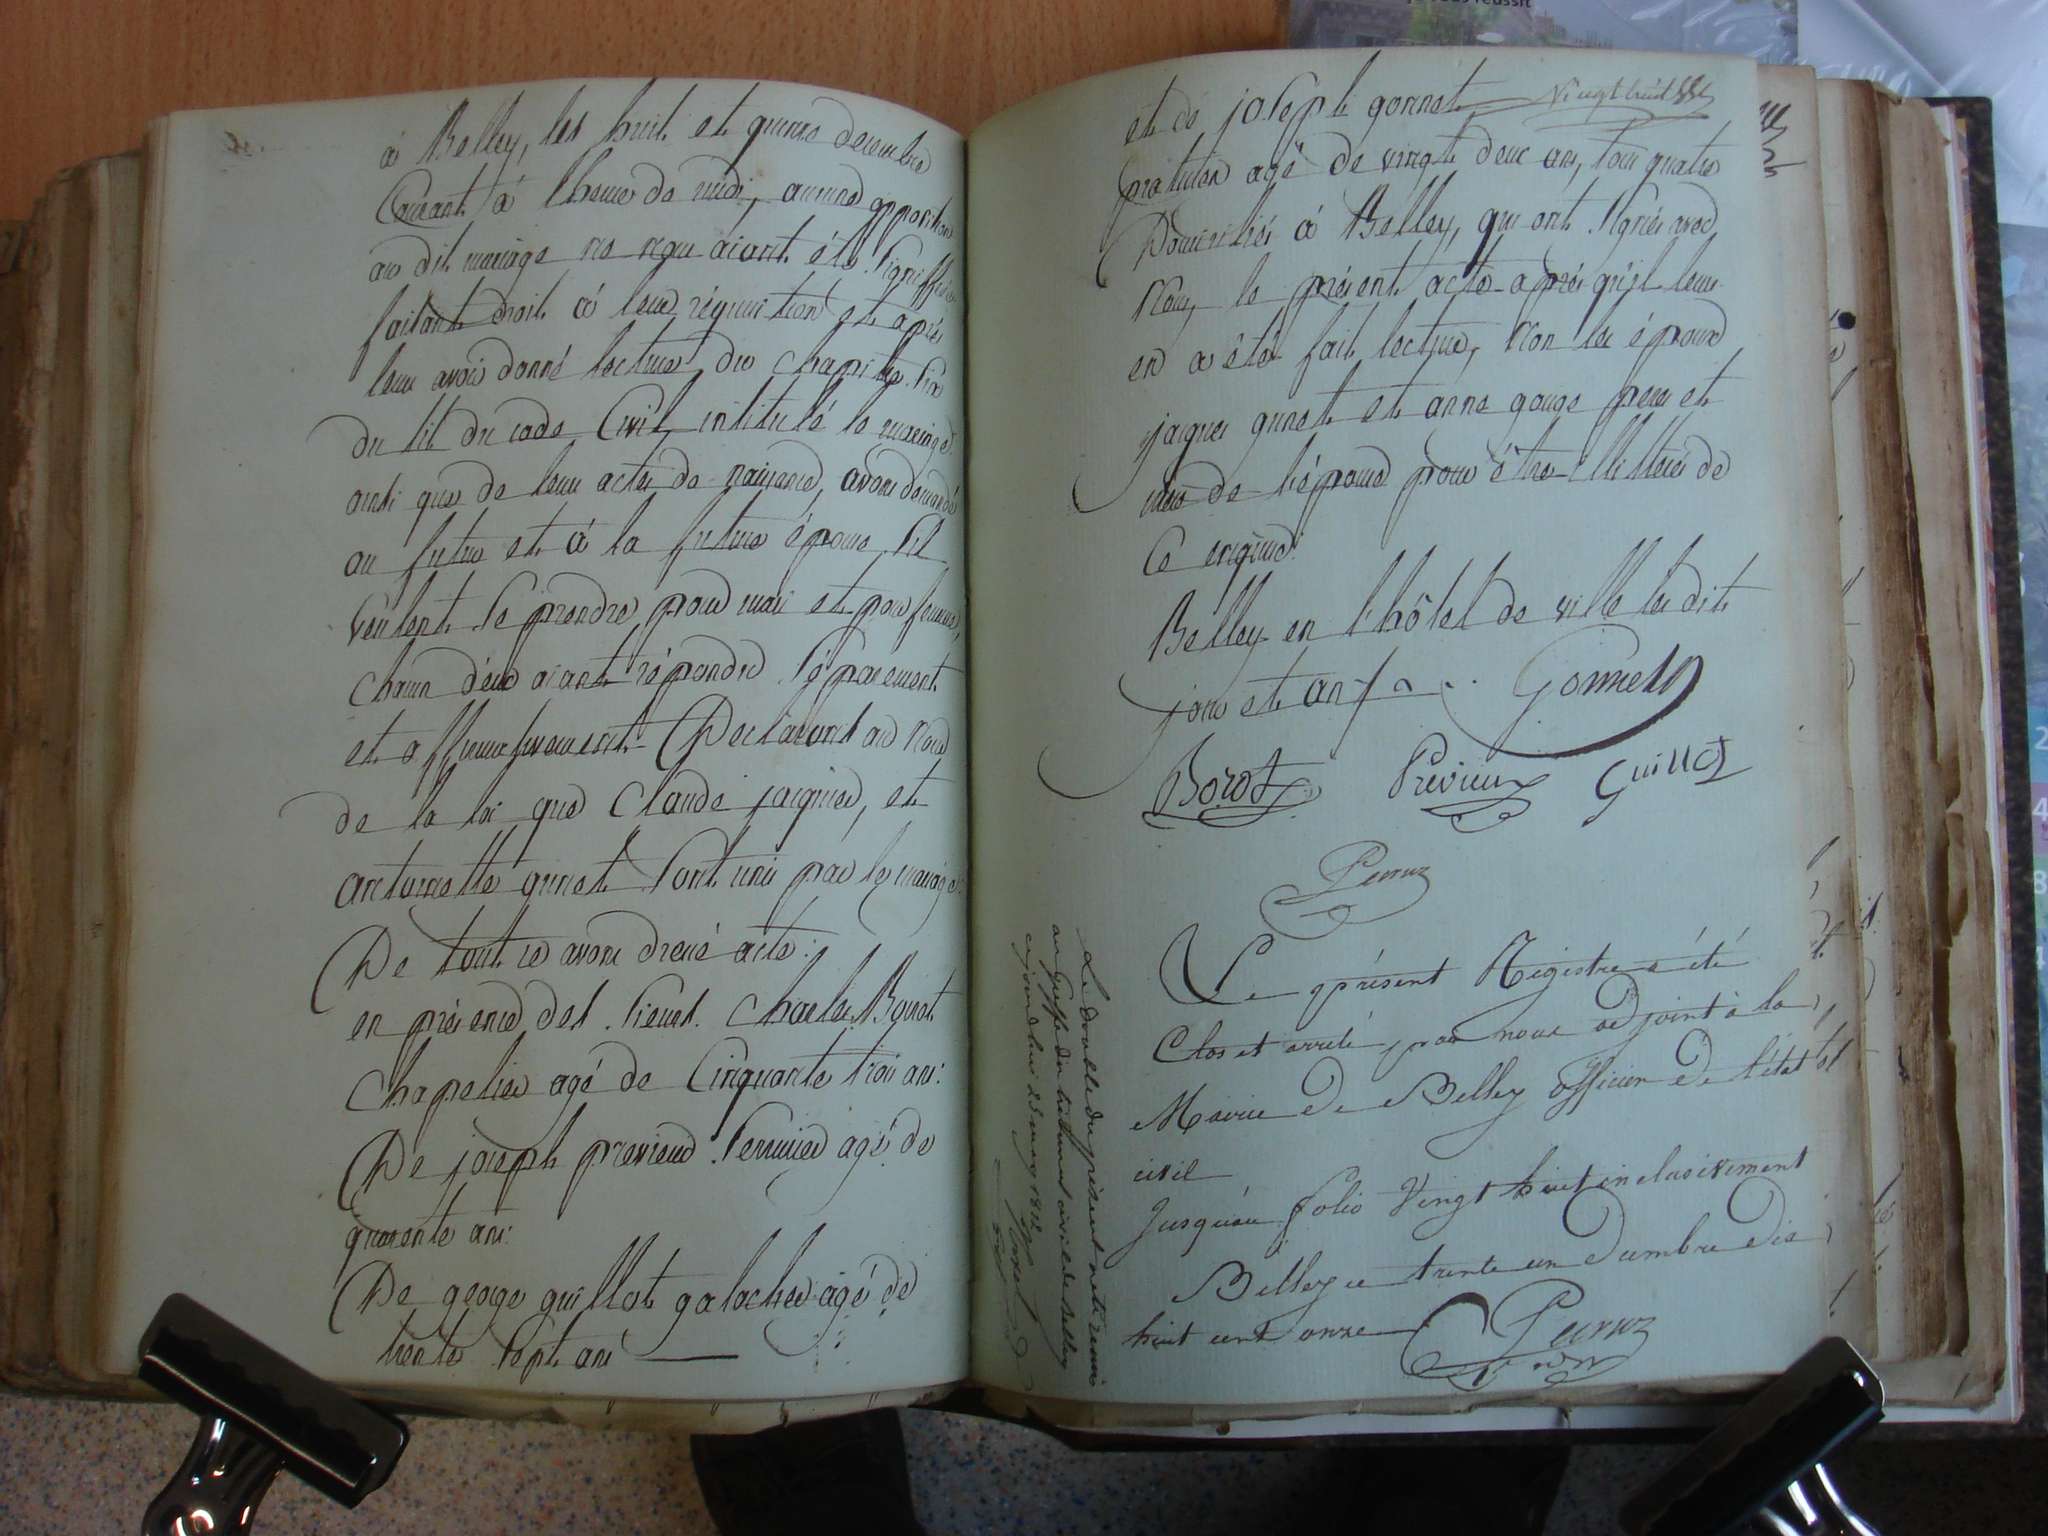 à Belley, les huit et quinze decembre
Courant à lheure de midi, aucune opposition
au dit mariage ne nous aiant été signiffiée
faisant droit à leur réquisition et après
leur avoir donné lecture du chapitre six
du tit du code Civil, intitulé le mariage
ainsi que de leur actes de naissance, avons demandé
au futur et à la future épouse s'il
veulent se prendre pour mari et pour femme,
chacun d'eux aiant répondu séparement
et affirmativement Declarons au Nom
de la loi que Claude jaiguier, et
antoinette grinet sont unis par le mariage:
De tout ce avons dressé acte:
en présence des sieurs. Charles Borot
Chapelier agé de Cinquante trois ans:
De joseph previeux Serrurier agé de
quarente ans:
De george guillot galocher agé de
trente sept ans
Vingt huit
et de joseph gonnet
praticien agé de vingt deux ans, tous quatre
Domiciliés à Belley, qui ont signés avec
Nous, le présent acte après qu'il leur
en a été fait lecture, Non les époux
jaiques grinet et anne gouge pere et
mere de l'épouse pour être illiterés de
Ce enquis:
Belley en l'hôtel de ville les dits
jour et an
Gonnet
Borot Prévieux Guillot
Perruz
Le présent Registre a été
Clos et arrêté par nous adjoint à la
Mairie De Belley officier De l'état
civil
Jusqu'au folio Vingt huit inclusivement
Belley ce trente un Décembre dix
huit cent onze
Perruz
Le double du présent a été remis
au Greffe du tribunal civil de Belley
cejourd'hui 25 mars 1812